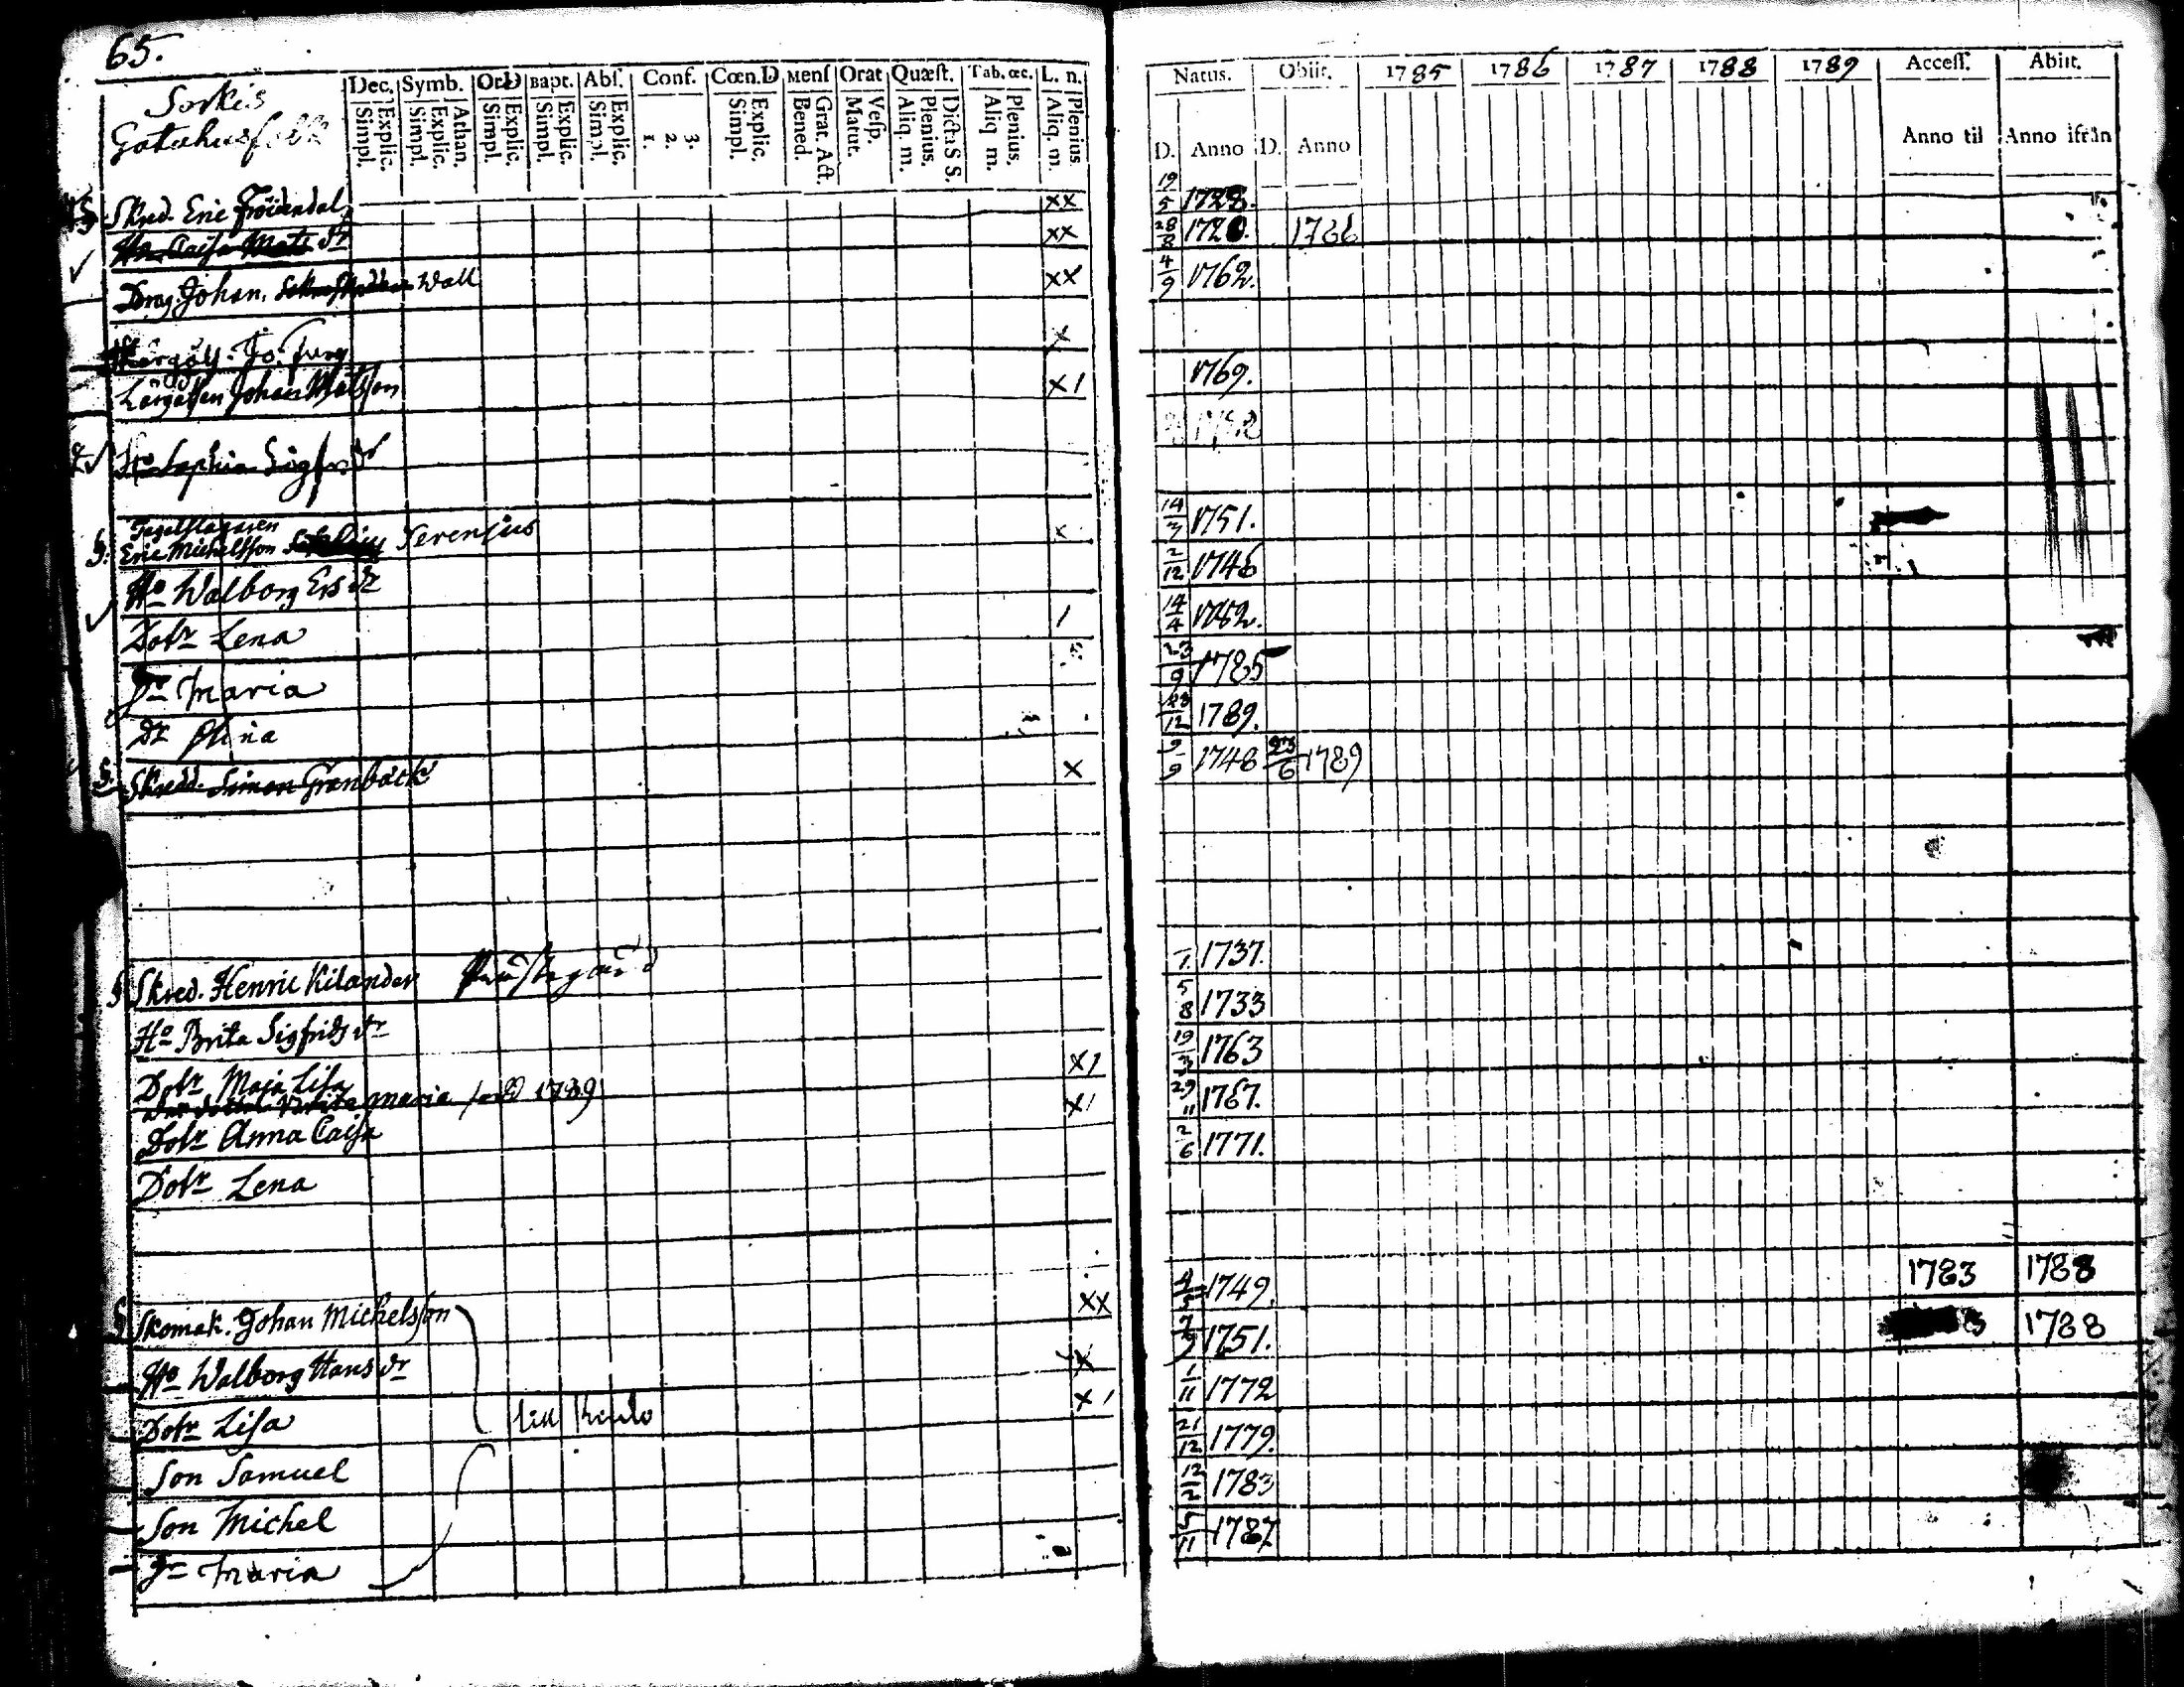 65.
Sorkis
Gatuhusfolk
Dec. Symb. Or.D Bapt. Abs. Conf. Cœn.D Mens Orat Quæst. Tab. œc. L. n.
Explic. Simpl. Athan. Explic. Simpl. Explic. Simpl. Explic. Simpl. Explic. Simpl. 3. 2. 1. Explic. Simpl. Grat. Act. Bened. Vesp. Matut. Dicta S S. Plenius. Aliq. m. Plenius. Aliq m. Plenius. Aliq. m.
Natus. Obiit. 1785 1786 1787 1788 1789 Access. Abiit.
D. Anno D. Anno Anno til Anno ifrån
Skred. Eric xx 19/5 1728.
Ho Caisa Mats dr xx 28/8 1720. 1786
Drag. Johan Wall xx 4/9 1762.
x
Johan Matsson x1 1769.
Ho Sophia Sigfrs dr
Tegelslagaren
§. Eric Michelsson Serenius x 14/3 1751.
Ho Walborg Ers dr 2/12 1746
Dotr Lena 1 14/4 1782.
Dr Maria 23/9 1785
Dr Stina 28/12 1789.
§. Skredd. Simon Grönback x 9/9 1748 23/6 1789
§ Skred. Henric Kilander 1 1737.
Ho Brita Sigfrids dr 5/8 1733
Dotr Maja Lisa x1 19/3 1763
maria 1789
Dotr Anna Caisa x1 29/11 1767.
Dotr Lena 2/6 1771.
§ Skomak. Johan Michelsson xx 1749. 1783 1788
Ho Walborg Hans dr x 1751. 1788
Dotr Lisa x1 1/11 1772
Son Samuel 21/12 1779.
Son Michel 12/2 1783
Dr Maria 11 1787